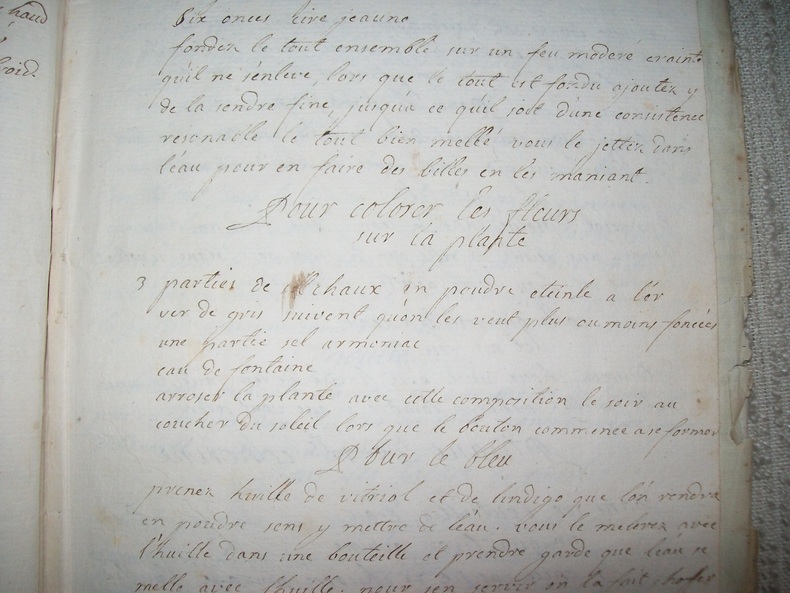 haud
six onces sire jeaune
fondez le tout ensemble sur un feu moderé crainte
qu'il ne s'enleve, lors que le tout est fondu ajoutez y
de la sendre fine, jusqu'a ce qu'il soit d'une consistence
resonable le tout bien mellé vous le jettez dans
l'eau pour en faire des billes en les maniant.
Pour colorer les fleurs
sur la plante
3 parties de chaux en poudre eteinte a l'er
ver de gris suivent qu'on les veut plus ou moins foncées
une partie sel armoniac
eau de fontaine
arroser la plante avec cette composition le soir au
coucher du soleil lors que le bouton commence a se former
Pour le bleu
prenez huille de vitriol et de lindigo que l'on rendra
en poudre sens y mettre de l'eau. vous le melerez avec
l'huille dans une bouteille et prendre garde que l'eau se
melle avec l'huille. pour s'en servir on la fait